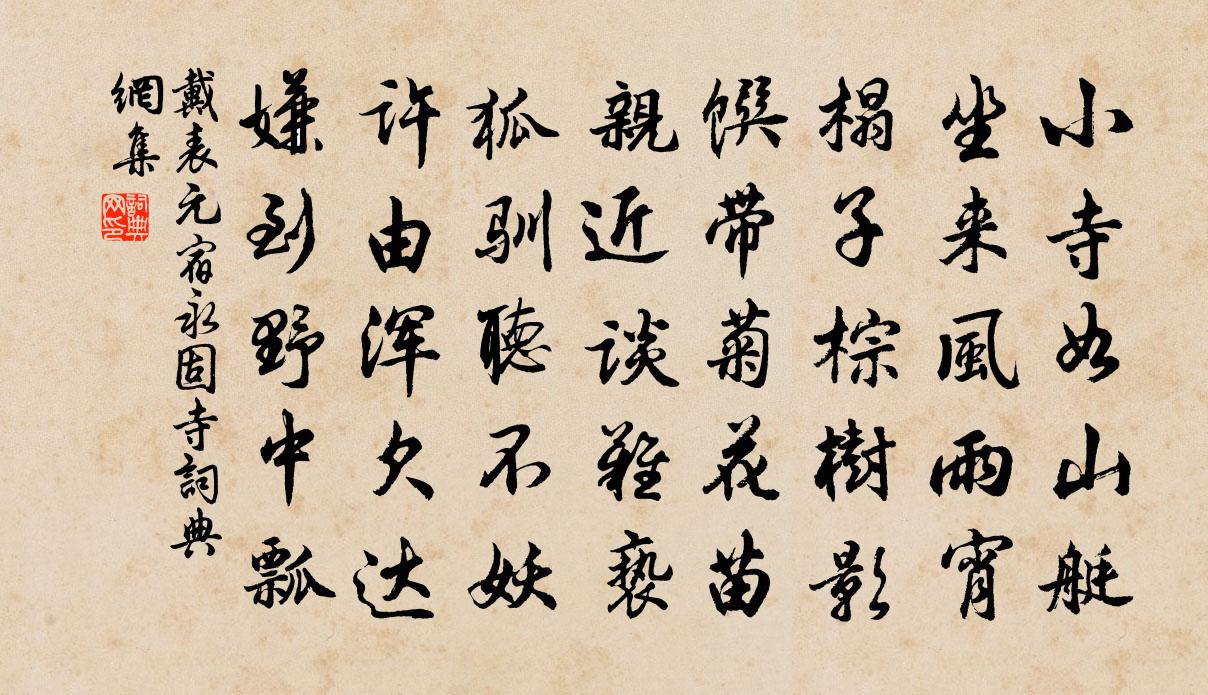 小寺如山艇
坐来風雨宵
榻子棕樹影
馔带菊花苗
親近谈難褻
狐驯聽不妖
许由浑欠达
嫌到野中瓢
戴表元宿永固寺詞典
網集
詞典
网印